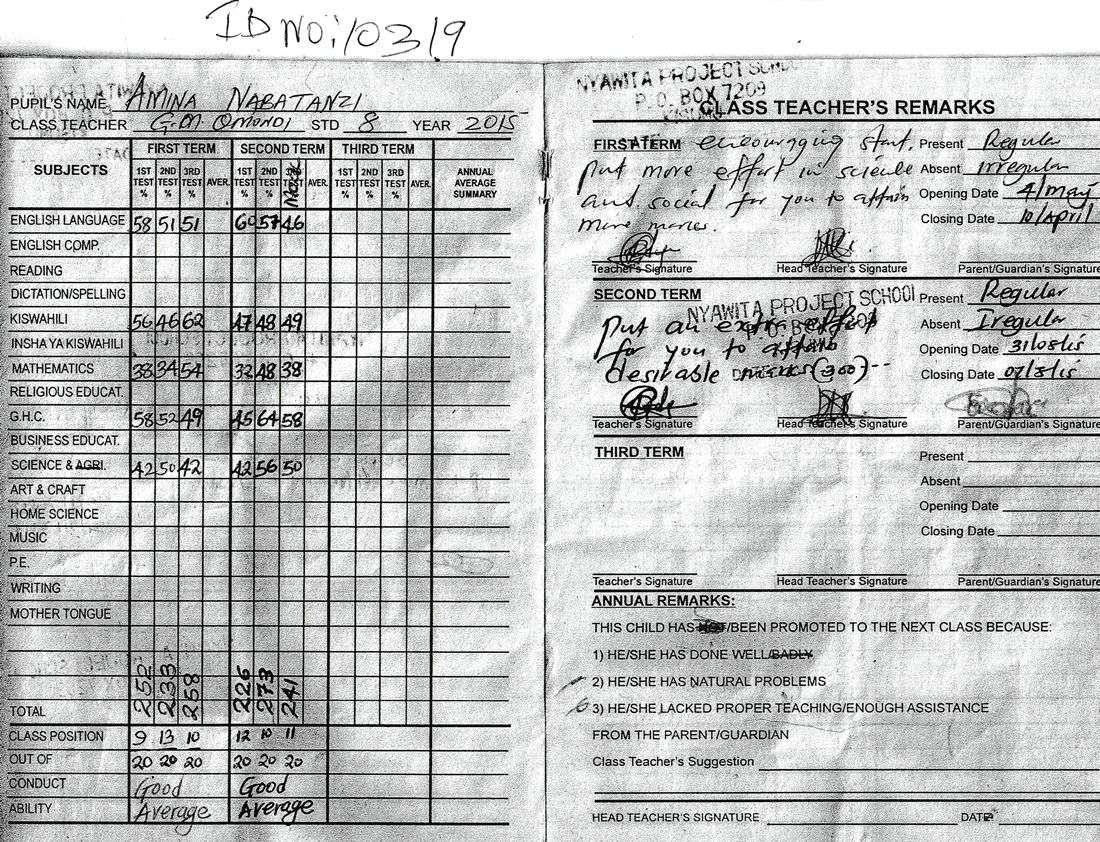 ID NO: 10319
PUPIL'S NAME AMINA NABATANZI
CLASS TEACHER G.M OMONDI STD 8 YEAR 2015
SUBJECTS FIRST TERM SECOND TERM THIRD TERM ANNUAL AVERAGE SUMMARY
1ST TEST % 2ND TEST % 3RD TEST % AVER. 1ST TEST % 2ND TEST % AVER. 1ST TEST % 2ND TEST % 3RD TEST % AVER.
ENGLISH LANGUAGE 58 51 51 60 57 46
ENGLISH COMP.
READING
DICTATION/SPELLING
KISWAHILI 56 46 62 47 48 49
INSHA YA KISWAHILI
MATHEMATICS 38 34 54 32 48 38
RELIGIOUS EDUCAT.
G.H.C. 58 52 49 45 64 58
BUSINESS EDUCAT.
SCIENCE & AGRI. 42 50 42 42 56 50
ART & CRAFT
HOME SCIENCE
MUSIC
P.E.
WRITING
MOTHER TONGUE
TOTAL 252 233 258 226 273 241
CLASS POSITION 9 13 10 12 10 11
OUT OF 20 20 20 20 20 20
CONDUCT Good Good
ABILITY Average Average
NYAWITA PROJECT SCHOOL
P.O. BOX 7209
CLASS TEACHER'S REMARKS
FIRST TERM encouraging start. Present Regular
put more effort in science Absent Irregular
and social for you to attain Opening Date 4/may
more marks. Closing Date 10/April
Teacher's Signature Head Teacher's Signature Parent/Guardian's Signature
SECOND TERM NYAWITA PROJECT SCHOOL Present Regular
put an extra effort Absent Iregular
for you to attain Opening Date 31/08/15
desirable marks (300)-- Closing Date 07/8/15
Teacher's Signature Head Teacher's Signature Parent/Guardian's Signature
THIRD TERM Present
Absent
Opening Date
Closing Date
Teacher's Signature Head Teacher's Signature Parent/Guardian's Signature
ANNUAL REMARKS:
THIS CHILD HAS NOT/BEEN PROMOTED TO THE NEXT CLASS BECAUSE:
1) HE/SHE HAS DONE WELL/BADLY
2) HE/SHE HAS NATURAL PROBLEMS
3) HE/SHE LACKED PROPER TEACHING/ENOUGH ASSISTANCE
FROM THE PARENT/GUARDIAN
Class Teacher's Suggestion
HEAD TEACHER'S SIGNATURE DATE